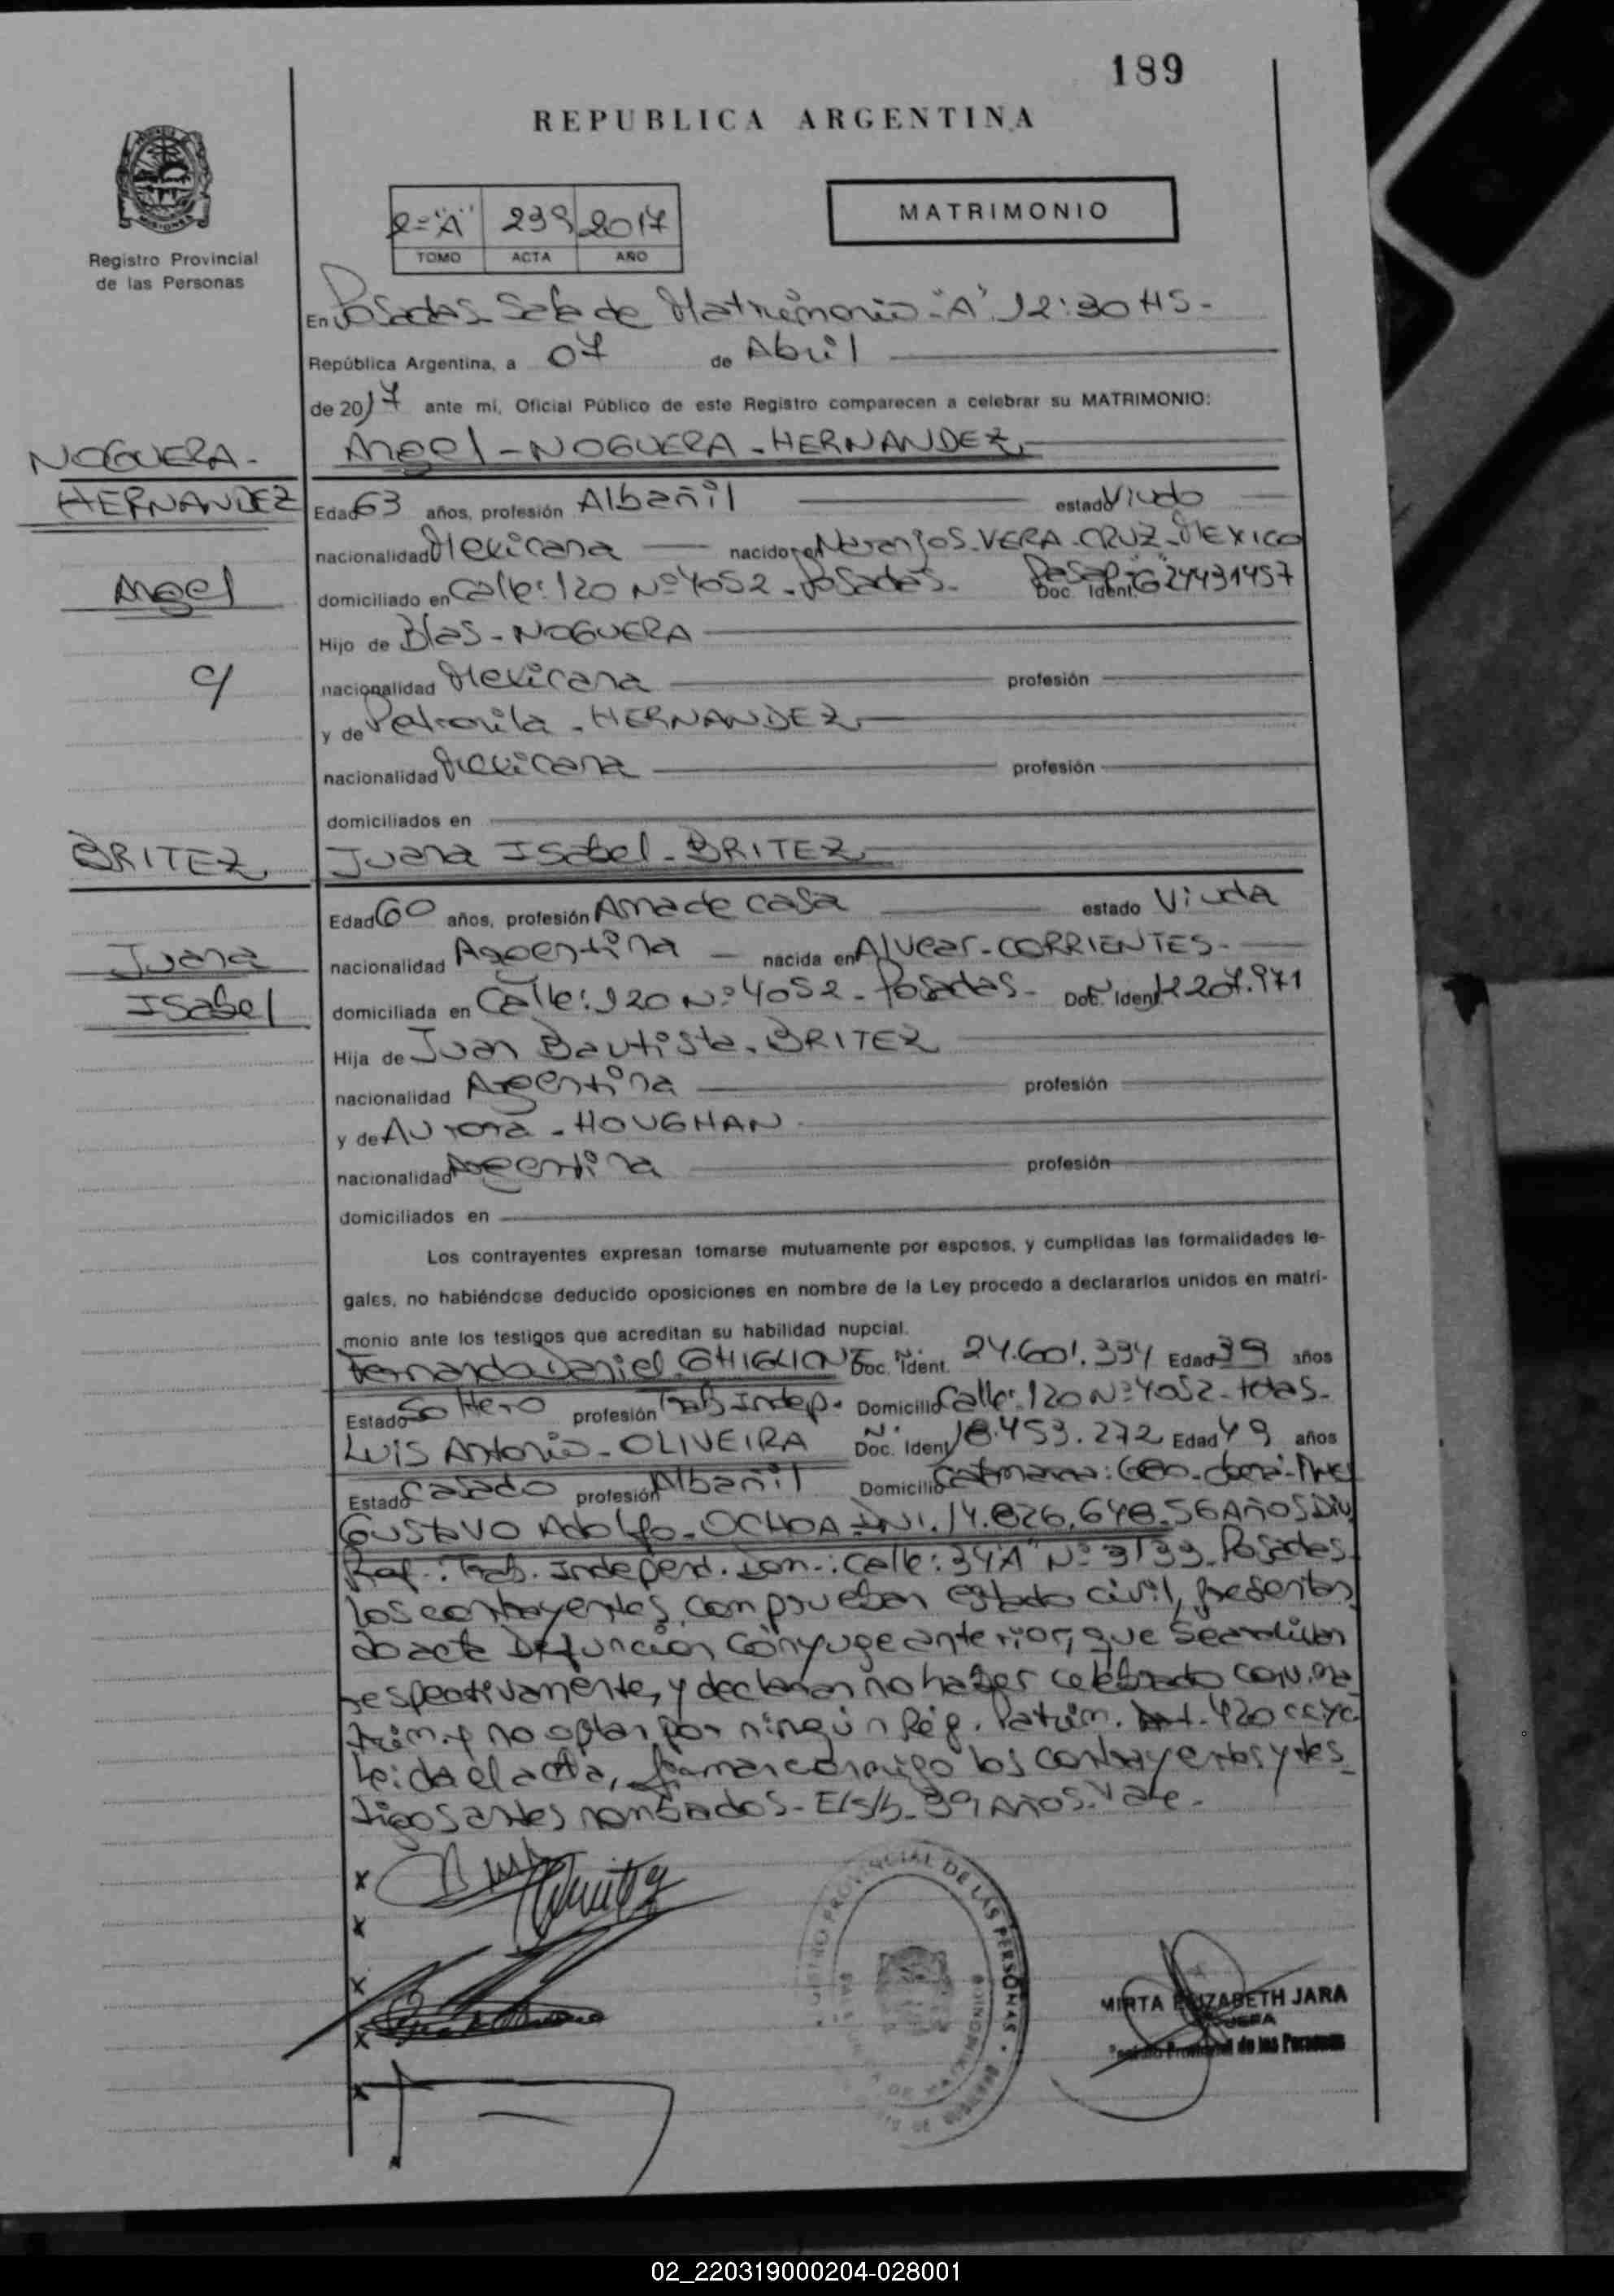 189
REPUBLICA ARGENTINA
MATRIMONIO
2="A" 239 2017
TOMO ACTA AÑO
Registro Provincial
de las Personas
En Posadas - Sala de Matrimonio - "A" 12:30 HS -
República Argentina, a 07 de Abril
de 2017 ante mí, Oficial Público de este Registro comparecen a celebrar su MATRIMONIO:
NOGUERA -
HERNANDEZ
Angel
c/
Angel - NOGUERA - HERNANDEZ
Edad 63 años, profesión Albañil estado Viudo
nacionalidad Mexicana nacido en Naranjos - VERA - CRUZ - MEXICO
domiciliado en Calle: 120 Nº 4052 - Posadas - Doc. Ident. G24431457
Hijo de Blas - NOGUERA
nacionalidad Mexicana profesión
y de Petronila - HERNANDEZ
nacionalidad Mexicana profesión
domiciliados en
BRITEZ
Juana
Isabel
Juana Isabel - BRITEZ
Edad 60 años, profesión Ama de casa estado Viuda
nacionalidad Argentina - nacida en Alvear - CORRIENTES -
domiciliada en Calle: 120 Nº 4052 - Posadas - Doc. Ident. 12207.971
Hija de Juan Bautista - BRITEZ
nacionalidad Argentina profesión
y de Aurora - HOUGHAN
nacionalidad Argentina profesión
domiciliados en
Los contrayentes expresan tomarse mutuamente por esposos, y cumplidas las formalidades le-
gales, no habiéndose deducido oposiciones en nombre de la Ley procedo a declararlos unidos en matri-
monio ante los testigos que acreditan su habilidad nupcial.
Fernando Daniel GHIGLIONE Doc. Ident. 24.601.334 Edad 39 años
Estado Soltero profesión Trab Indep - Domicilio Calle: 120 Nº 4052 - Pdas -
Luis Antonio - OLIVEIRA Doc. Ident 18.453.272 Edad 49 años
Estado Casado profesión Albañil Domicilio
Gustavo Adolfo - OCHOA - DNI. 14.826.648 - 56 AÑOS Div
Prof.: Trab. Independ. Dom.: Calle: 34 A Nº 3133 - Posadas
Los contrayentes comprueban estado civil, presentan
do acta Defunción Cónyuge anterior, que se archivan
respectivamente, y declaran no haber celebrado conv. ma
trim. y no optar por ningún Rég. Patrim. Art. 420 ccyc
Leida el acta, firman conmigo los contrayentes y tes
tigos antes nombrados - E/s/b - 39 AÑOS - Vale -
x
x
x
x
x
REGISTRO PROVINCIAL DE LAS PERSONAS
MIRTA ELIZABETH JARA
JEFA
Registro Provincial de las Personas
02_220319000204-028001